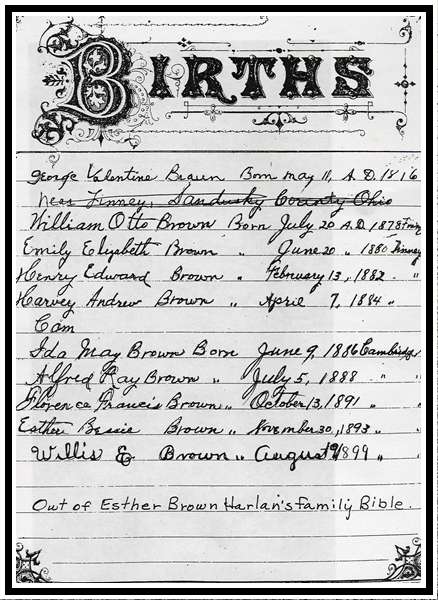 BIRTHS
George Valentine Braun Born May 11, A.D. 1816
Near Finney, Sandusky County Ohio
William Otto Brown Born July 20 A.D. 1878
Emily Elysbeth Brown " June 20 " 1880 Finney
Henry Edward Brown " February 13, 1882 "
Harvey Andrew Brown " April 7, 1884 "
Cam
Ida May Brown Born June 9, 1886 Cambridge
Alfred Ray Brown " July 5, 1888 " "
Florence Francis Brown " October 13, 1891 " "
Esther Bessie Brown " November 30, 1893 " "
Willis E Brown " August 1899 " "
Out of Esther Brown Harlan's family Bible.